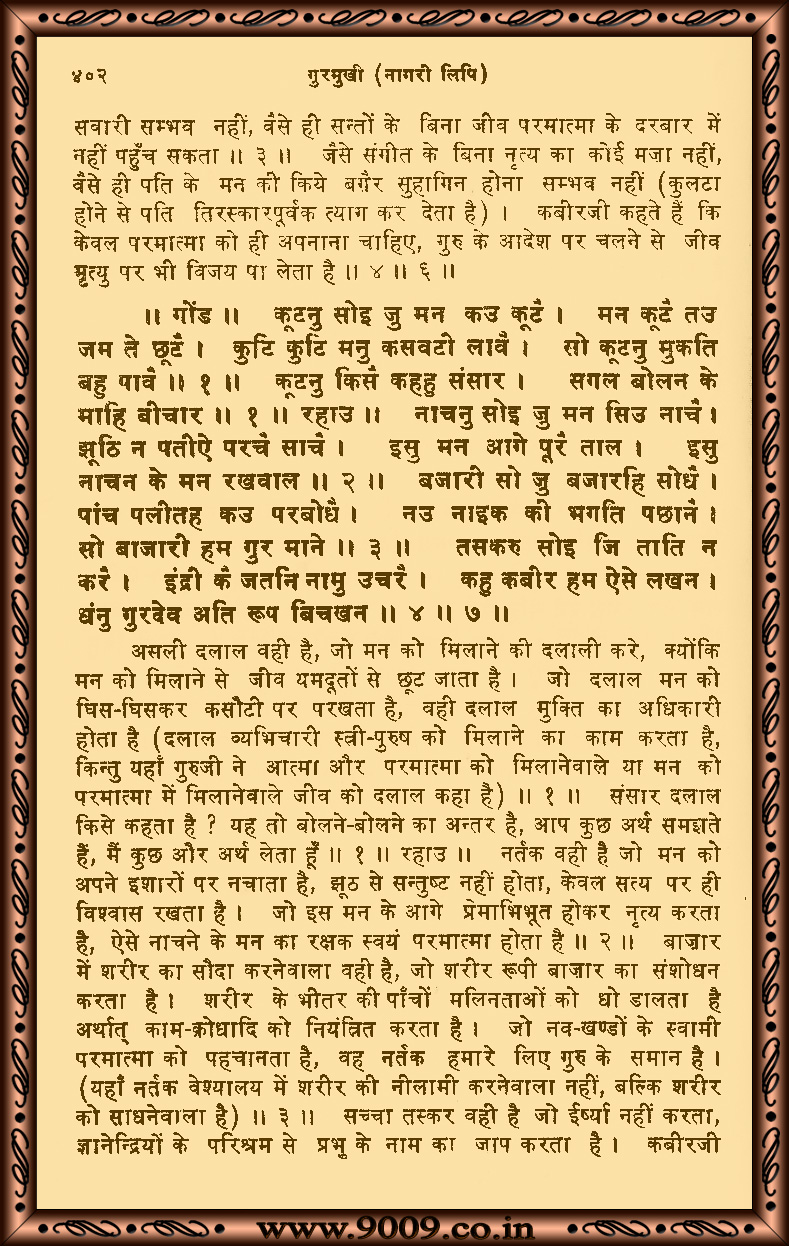 ४०२ गुरमुखी (नागरी लिपि)
सवारी सम्भव नहीं, वैसे ही सन्तों के बिना जीव परमात्मा के दरबार में
नहीं पहुँच सकता ॥ ३ ॥ जैसे संगीत के बिना नृत्य का कोई मजा नहीं,
वैसे ही पति के मन की किये बग़ैर सुहागिन होना सम्भव नहीं (कुलटा
होने से पति तिरस्कारपूर्वक त्याग कर देता है) । कबीरजी कहते हैं कि
केवल परमात्मा को ही अपनाना चाहिए, गुरु के आदेश पर चलने से जीव
मृत्यु पर भी विजय पा लेता है ॥ ४ ॥ ६ ॥
॥ गोंड ॥ कूटनु सोइ जु मन कउ कूटै । मन कूटै तउ
जम ते छूटै । कुटि कुटि मनु कसवटी लावै । सो कूटनु मुकति
बहु पावै ॥ १ ॥ कूटनु किसै कहहु संसार । सगल बोलन के
माहि बीचार ॥ १ ॥ रहाउ ॥ नाचनु सोइ जु मन सिउ नाचै ।
झूठि न पतीऐ परचै साचै । इसु मन आगे पूरै ताल । इसु
नाचन के मन रखवाल ॥ २ ॥ बजारी सो जु बजारहि सोधै ।
पांच पलीतह कउ परबोधै । नउ नाइक की भगति पछानै ।
सो बाजारी हम गुर माने ॥ ३ ॥ तसकरु सोइ जि ताति न
करै । इंद्री कै जतनि नामु उचरै । कहु कबीर हम ऐसे लखन ।
धंनु गुरदेव अति रूप बिचखन ॥ ४ ॥ ७ ॥
असली दलाल वही है, जो मन को मिलाने की दलाली करे, क्योंकि
मन को मिलाने से जीव यमदूतों से छूट जाता है । जो दलाल मन को
घिस-घिसकर कसौटी पर परखता है, वही दलाल मुक्ति का अधिकारी
होता है (दलाल व्यभिचारी स्त्री-पुरुष को मिलाने का काम करता है,
किन्तु यहाँ गुरुजी ने आत्मा और परमात्मा को मिलानेवाले या मन को
परमात्मा में मिलानेवाले जीव को दलाल कहा है) ॥ १ ॥ संसार दलाल
किसे कहता है ? यह तो बोलने-बोलने का अन्तर है, आप कुछ अर्थ समझते
हैं, मैं कुछ और अर्थ लेता हूँ ॥ १ ॥ रहाउ ॥ नर्तक वही है जो मन को
अपने इशारों पर नचाता है, झूठ से सन्तुष्ट नहीं होता, केवल सत्य पर ही
विश्वास रखता है । जो इस मन के आगे प्रेमाभिभूत होकर नृत्य करता
है, ऐसे नाचने के मन का रक्षक स्वयं परमात्मा होता है ॥ २ ॥ बाज़ार
में शरीर का सौदा करनेवाला वही है, जो शरीर रूपी बाजार का संशोधन
करता है । शरीर के भीतर की पाँचों मलिनताओं को धो डालता है
अर्थात् काम-क्रोधादि को नियंत्रित करता है । जो नव-खण्डों के स्वामी
परमात्मा को पहचानता है, वह नर्तक हमारे लिए गुरु के समान है ।
(यहाँ नर्तक वेश्यालय में शरीर की नीलामी करनेवाला नहीं, बल्कि शरीर
को साधनेवाला है) ॥ ३ ॥ सच्चा तस्कर वही है जो ईर्ष्या नहीं करता,
ज्ञानेन्द्रियों के परिश्रम से प्रभु के नाम का जाप करता है । कबीरजी
www.9009.co.in